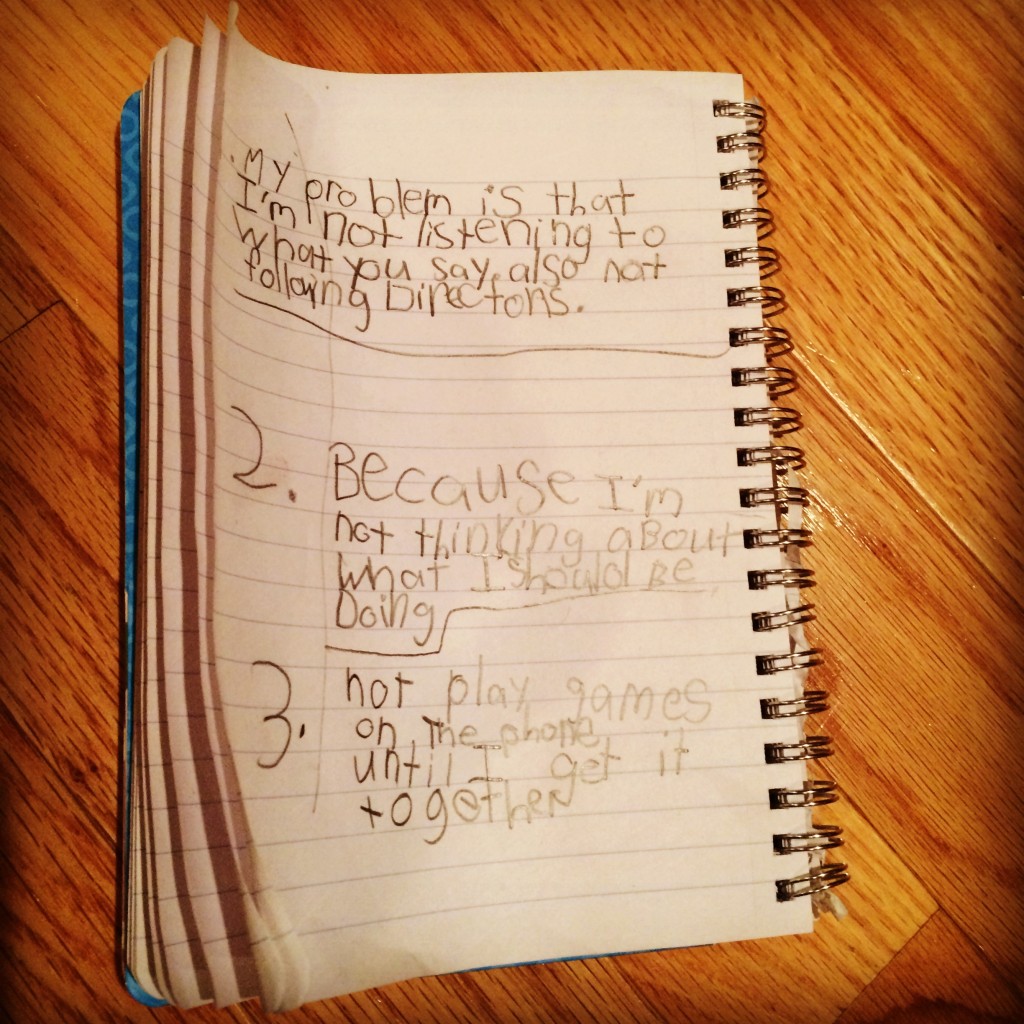 My problem is that
I'm not listening to
what you say, also not
following Directons.
2. Because I'm
not thinking about
what I should Be
Doing
3. not play games
on the phone
until I get it
together